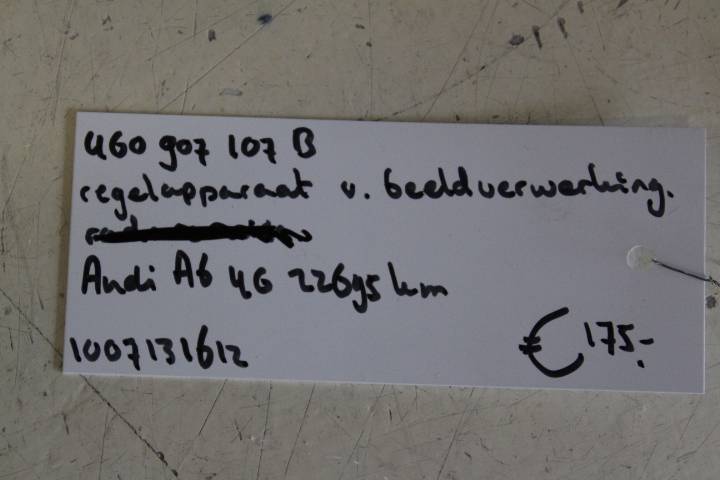 4G0 907 107 B
regelapparaat v. beeldverwerking.
Audi A6 4G 22695 km
1007131612
€ 175,-